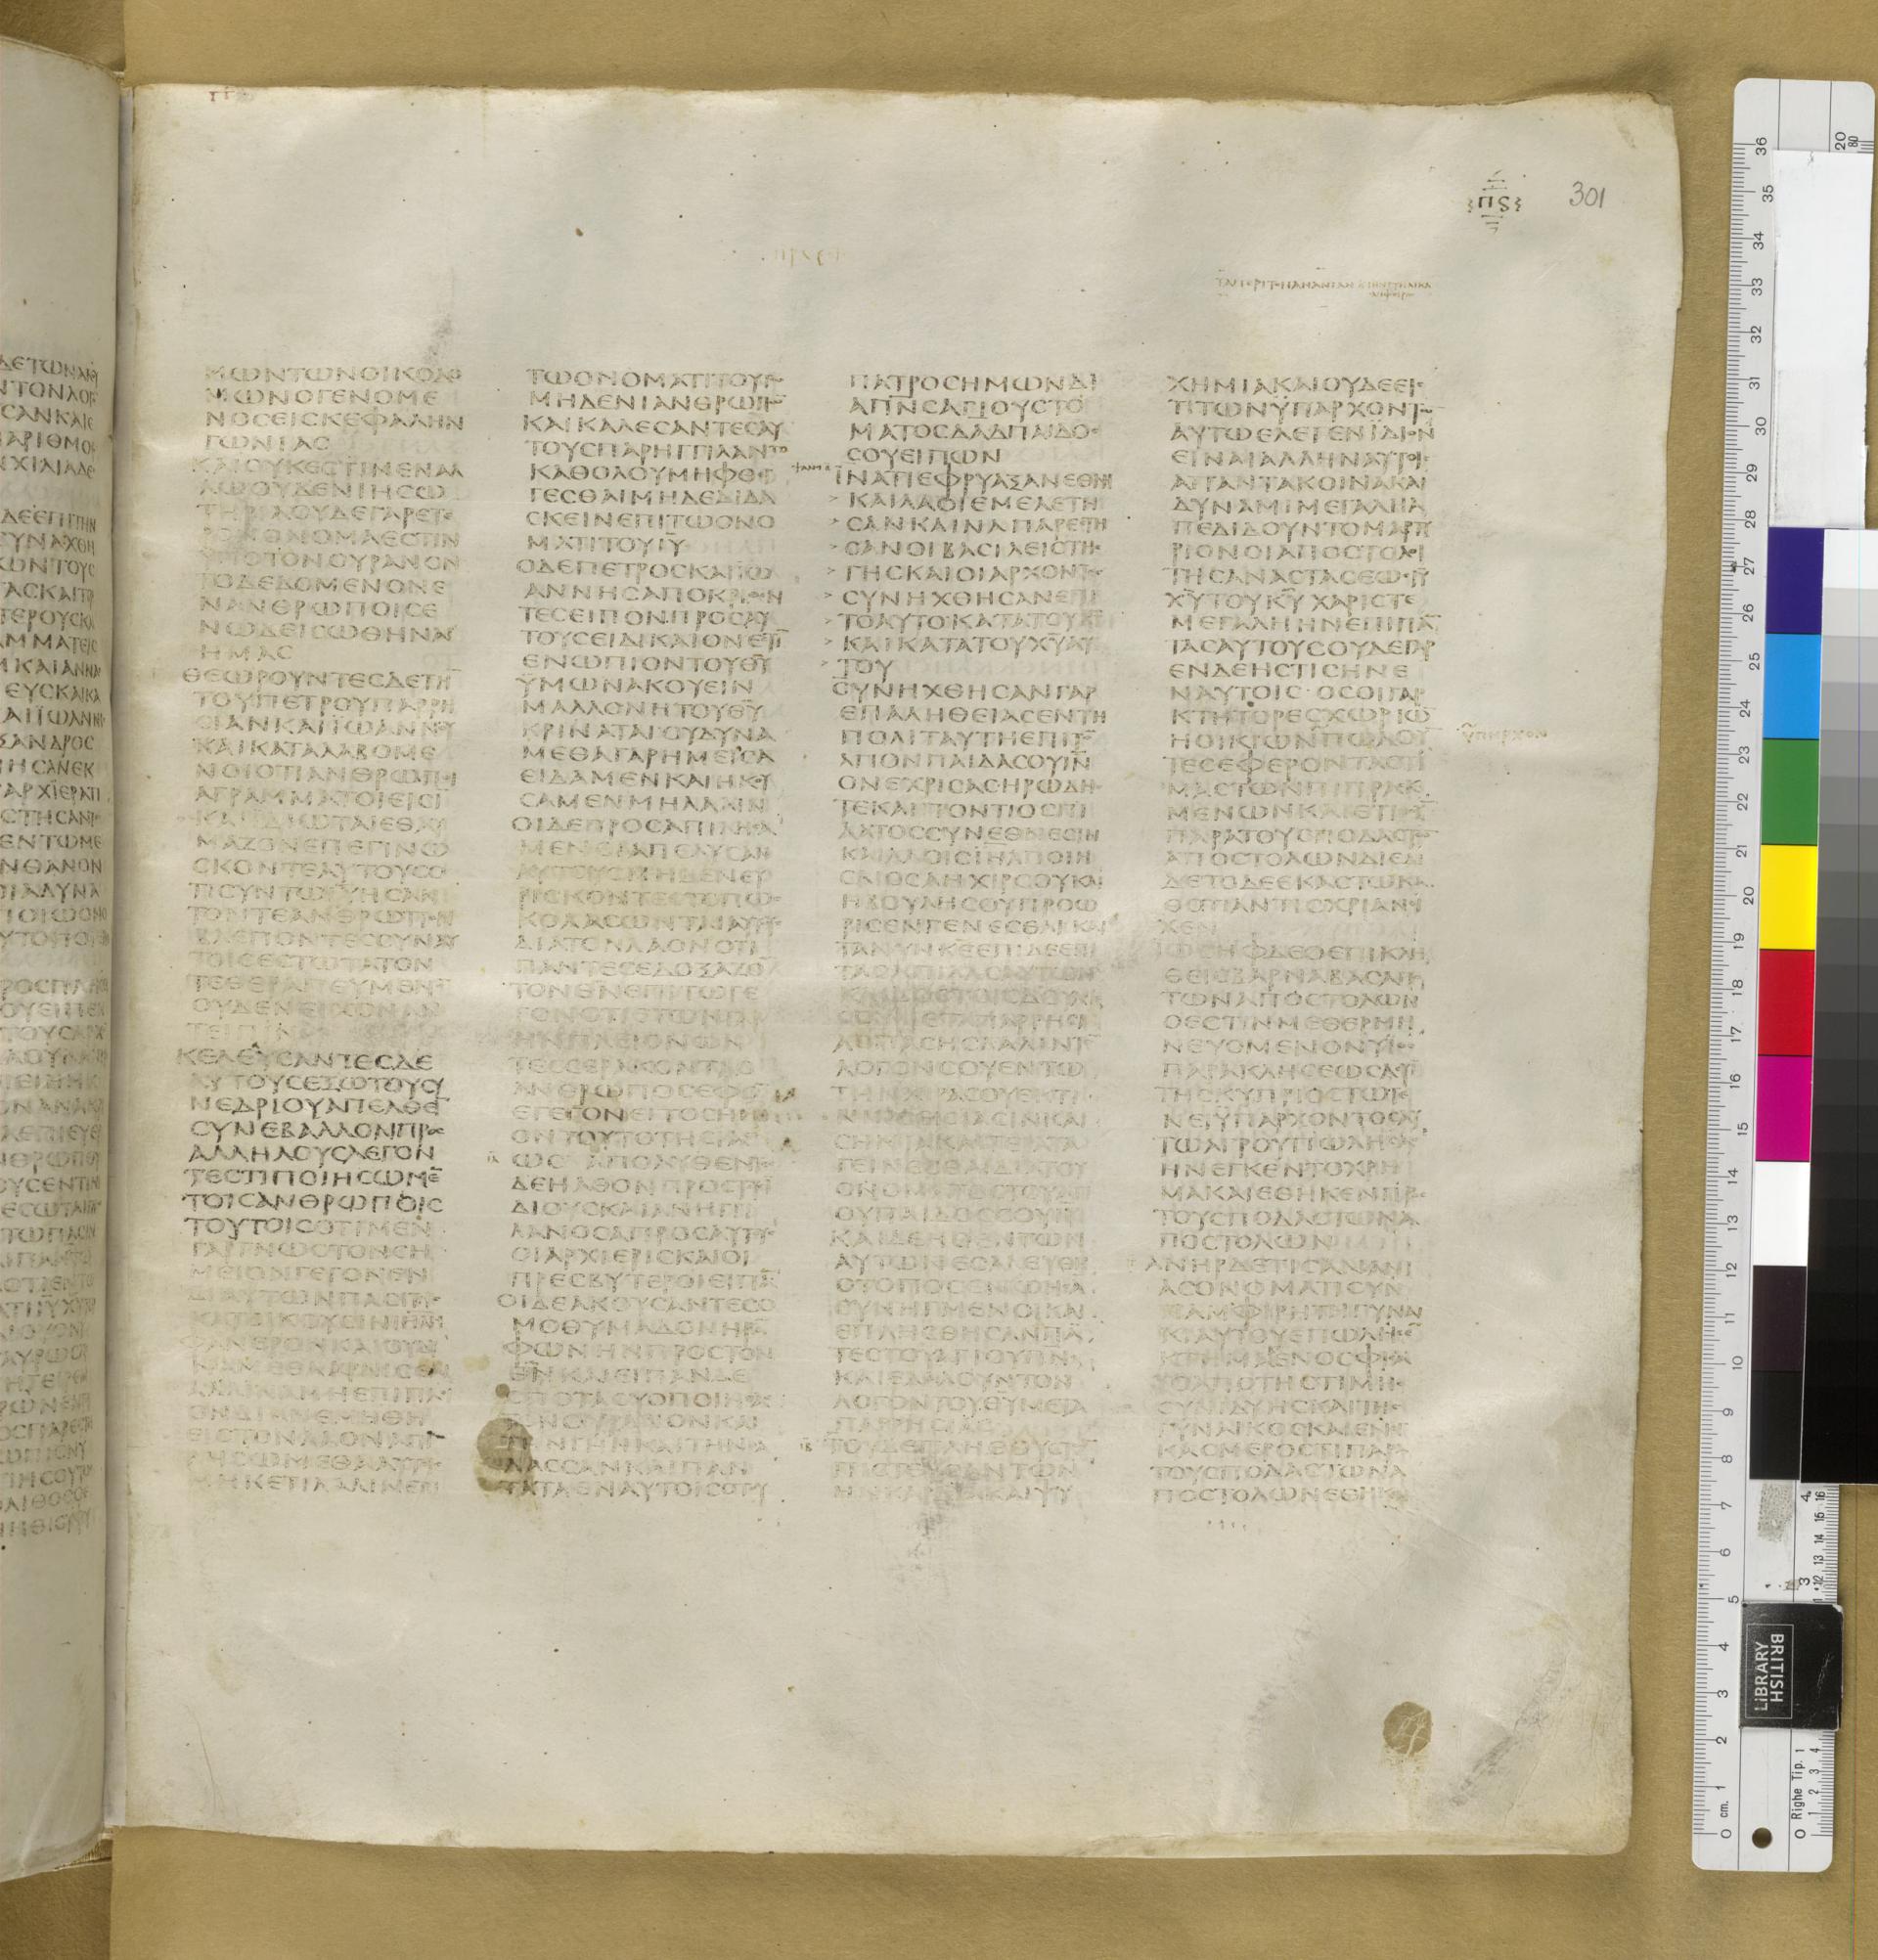 301
ΠϚ
ΜΩΝΤΩΝΟΙΚΟΔΟ
ΜΩΝΟΓΕΝΟΜΕ
ΝΟϹΕΙϹΚΕΦΑΛΗΝ
ΓΩΝΙΑϹ
ΚΑΙΟΥΚΕϹΤΙΝΕΝΑΛ
ΛΩΟΥΔΕΝΙΗϹΩ
ΤΗΡΙΑΟΥΔΕΓΑΡΕΤΕ
ΡΟΝΟΝΟΜΑΕϹΤΙΝ
ΫΠΟΤΟΝΟΥΡΑΝΟΝ
ΤΟΔΕΔΟΜΕΝΟΝΕ
ΝΑΝΘΡΩΠΟΙϹΕ
ΝΩΔΕΙϹΩΘΗΝΑΙ
ΗΜΑϹ
ΘΕΩΡΟΥΝΤΕϹΔΕΤΗ̅
ΤΟΥΠΕΤΡΟΥΠΑΡΡΗ
ϹΙΑΝΚΑΙΪΩΑΝΝΟΥ
ΚΑΙΚΑΤΑΛΑΒΟΜΕ
ΝΟΙΟΤΙΑΝΘΡΩΠΟΙ
ΑΓΡΑΜΜΑΤΟΙΕΙϹΙ̅
ΚΑΙΪΔΙΩΤΑΙΕΘΑΥ
ΜΑΖΟΝΕΠΕΓΙΝΩ
ϹΚΟΝΤΕΑΥΤΟΥϹΟ
ΤΙϹΥΝΤΩΙΥ̅ΗϹΑΝ
ΤΟΝΤΕΑΝΘΡΩΠΟΝ
ΒΛΕΠΟΝΤΕϹϹΥΝΑΥ
ΤΟΙϹΕϹΤΩΤΑΤΟΝ
ΤΕΘΕΡΑΠΕΥΜΕΝΟ̅
ΟΥΔΕΝΕΙΧΟΝΑΝ
ΤΕΙΠΙΝ
ΚΕΛΕΥϹΑΝΤΕϹΔΕ
ΑΥΤΟΥϹΕΞΩΤΟΥϹΥ
ΝΕΔΡΙΟΥΑΠΕΛΘΕΙ̅
ϹΥΝΕΒΑΛΛΟΝΠΡΟϹ
ΑΛΛΗΛΟΥϹΛΕΓΟΝ
ΤΕϹΤΙΠΟΙΗϹΩΜΕ̅
ΤΟΙϹΑΝΘΡΩΠΟΙϹ
ΤΟΥΤΟΙϹΟΤΙΜΕΝ
ΓΑΡΓΝΩϹΤΟΝϹΗ
ΜΕΙΟΝΓΕΓΟΝΕΝ
ΔΙΑΥΤΩΝΠΑϹΙΤΟΙϹ
ΦΑΝΕΡΟΝΚΑΙΟΥΔΥ
ΝΑΜΕΘΑΑΡΝΙϹΘΑΙ
ΑΛΛΙΝΑΜΗΕΠΙΠΛΙ
ΟΝΔΙΑΝΕΜΗΘΗ
ΕΙϹΤΟΝΛΑΟΝΑΠΙ
ΛΗϹΩΜΕΘΑΑΥΤΟΙϹ
ΜΗΚΕΤΙΛΑΛΙΝΕΠΙ
ΤΩΟΝΟΜΑΤΙΤΟΥΤΩ
ΜΗΔΕΝΙΑΝΘΡΩΠΩ̅
ΚΑΙΚΑΛΕϹΑΝΤΕϹΑΥ
ΤΟΥϹΠΑΡΗΓΓΙΛΑΝΤΟ
ΚΑΘΟΛΟΥΜΗΦΘΕΓ
ΓΕϹΘΑΙΜΗΔΕΔΙΔΑ
ϹΚΕΙΝΕΠΙΤΩΟΝΟ
ΜΑΤΙΤΟΥΙΥ̅
ΟΔΕΠΕΤΡΟϹΚΑΙΪΩ
ΑΝΝΗϹΑΠΟΚΡΙΘΕΝ
ΤΕϹΕΙΠΟΝΠΡΟϹΑΥ
ΤΟΥϹΕΙΔΙΚΑΙΟΝΕϹΤΙ̅
ΕΝΩΠΙΟΝΤΟΥΘΥ̅
ΫΜΩΝΑΚΟΥΕΙΝ
ΜΑΛΛΟΝΗΤΟΥΘΥ̅
ΚΡΙΝΑΤΑΙΟΥΔΥΝΑ
ΜΕΘΑΓΑΡΗΜΕΙϹΑ
ΕΙΔΑΜΕΝΚΑΙΗΚΟΥ
ϹΑΜΕΝΜΗΛΑΛΙΝ
ΟΙΔΕΠΡΟϹΑΠΙΛΗϹΑ
ΜΕΝΟΙΑΠΕΛΥϹΑΝ
ΑΥΤΟΥϹΜΗΔΕΝΕΥ
ΡΙϹΚΟΝΤΕϹΤΟΠΩϹ
ΚΟΛΑϹΩΝΤΑΙΑΥΤΟΥϹ
ΔΙΑΤΟΝΛΑΟΝΟΤΙ
ΠΑΝΤΕϹΕΔΟΞΑΖΟ̅
ΤΟΝΘΝ̅ΕΠΙΤΩΓΕ
ΓΟΝΟΤΙΕΤΩΝΓΑΡ
ΗΝΠΛΕΙΟΝΩΝ
ΤΕϹϹΕΡΑΚΟΝΤΑΟ
ΑΝΘΡΩΠΟϹΕΦΟ̅
ΕΓΕΓΟΝΕΙΤΟϹΗΜΙ
ΟΝΤΟΥΤΟΤΗϹΙΑϹ
ΑΠΟΛΥΘΕΝΤΕϹ
ΔΕΗΛΘΟΝΠΡΟϹΤΟΥϹ
ΔΙΟΥϹΚΑΙΑΝΗΓΓΙ
ΛΑΝΟϹΑΠΡΟϹΑΥΤΟΥϹ
ΟΙΑΡΧΙΕΡΙϹΚΑΙΟΙ
ΠΡΕϹΒΥΤΕΡΟΙΕΙΠΑ̅
ΟΙΔΕΑΚΟΥϹΑΝΤΕϹΟ
ΜΟΘΥΜΑΔΟΝΗΡΑ̅
ΦΩΝΗΝΠΡΟϹΤΟΝ
ΘΝ̅ΚΑΙΕΙΠΑΝΔΕ
ϹΠΟΤΑϹΥΟΠΟΙΗϹΑϹ
ΤΟΝΟΥΡΑΝΟΝΚΑΙ
ΤΗΝΓΗΝΚΑΙΤΗΝΘΑ
ΛΑϹϹΑΝΚΑΙΠΑΝ
ΤΑΤΑΕΝΑΥΤΟΙϹΟΤΟΥ
ΠΑΤΡΟϹΗΜΩΝΔΙ
ΑΠΝ̅ϹΑΓΙΟΥϹΤΟ
ΜΑΤΟϹΔΑΔΠΑΙΔΟϹ
ϹΟΥΕΙΠΩΝ
ΪΝΑΤΙΕΦΡΥΑΞΑΝΕΘΝΗ
ΚΑΙΛΑΟΙΕΜΕΛΕΤΗ
ϹΑΝΚΑΙΝΑΠΑΡΕϹΤΗ
ϹΑΝΟΙΒΑϹΙΛΕΙϹΤΗϹ
ΓΗϹΚΑΙΟΙΑΡΧΟΝΤΕϹ
ϹΥΝΗΧΘΗϹΑΝΕΠΙ
ΤΟΑΥΤΟΚΑΤΑΤΟΥΚΥ̅
ΚΑΙΚΑΤΑΤΟΥΧΥ̅ΑΥ
ΤΟΥ
ϹΥΝΗΧΘΗϹΑΝΓΑΡ
ΕΠΑΛΗΘΕΙΑϹΕΝΤΗ
ΠΟΛΙΤΑΥΤΗΕΠΙΤΟ̅
ΑΓΙΟΝΠΑΙΔΑϹΟΥΙΝ̅
ΟΝΕΧΡΙϹΑϹΗΡΩΔΗϹ
ΤΕΚΑΙΠΟΝΤΙΟϹΠΙ
ΛΑΤΟϹϹΥΝΕΘΝΕϹΙΝ
ΚΑΙΛΑΟΙϹΙΗ̅ΛΠΟΙΗ
ϹΑΙΟϹΑΗΧΙΡϹΟΥΚΑΙ
ΗΒΟΥΛΗϹΟΥΠΡΟΩ
ΡΙϹΕΝΓΕΝΕϹΘΑΙΚΑΙ
ΤΑΝΥΝΚΕ̅ΕΠΙΔΕΕΠΙ
ΤΑϹΑΠΙΛΑϹΑΥΤΩΝ
ΚΑΙΔΟϹΤΟΙϹΔΟΥΛΟΙϹ
ϹΟΥΜΕΤΑΠΑΡΡΗϹΙ
ΑϹΠΑϹΗϹΛΑΛΙΝΤΟ̅
ΛΟΓΟΝϹΟΥΕΝΤΩ
ΤΗΝΧΙΡΑϹΟΥΕΚΤΙ
ΓΕΙΝΕϹΘΑΙΔΙΑΤΟΥ
ΟΝΟΜΑΤΟϹΤΟΥΑΓΙ
ΟΥΠΑΙΔΟϹϹΟΥΙΥ̅
ΚΑΙΔΕΗΘΕΝΤΩΝ
ΑΥΤΩΝΕϹΑΛΕΥΘΗ
ΟΤΟΠΟϹΕΝΩΗϹΑ
ϹΥΝΗΓΜΕΝΟΙΚΑΙ
ΕΠΛΗϹΘΗϹΑΝΠΑ̅
ΤΕϹΤΟΥΑΓΙΟΥΠΝ̅Ϲ
ΚΑΙΕΛΑΛΟΥΝΤΟΝ
ΛΟΓΟΝΤΟΥΘΥ̅ΜΕΤΑ
ΠΑΡΡΗϹΙΑϹ
ΤΟΥΔΕΠΛΗΘΟΥϹΤΩ̅
ΠΙϹΤΕΥϹΑΝΤΩΝ
ΗΝΚΑΡΔΙΑΚΑΙΨΥ
ΧΗΜΙΑΚΑΙΟΥΔΕΕΙϹ
ΤΙΤΩΝΫΠΑΡΧΟΝΤΩ̅
ΑΥΤΩΕΛΕΓΕΝΪΔΙΟΝ
ΕΙΝΑΙΑΛΛΗΝΑΥΤΟΙϹ
ΑΠΑΝΤΑΚΟΙΝΑΚΑΙ
ΔΥΝΑΜΙΜΕΓΑΛΗΑ
ΠΕΔΙΔΟΥΝΤΟΜΑΡΤΥ
ΡΙΟΝΟΙΑΠΟϹΤΟΛΟΙ
ΤΗϹΑΝΑϹΤΑϹΕΩϹΙΥ̅
ΧΥ̅ΤΟΥΚΥ̅ΧΑΡΙϹΤΕ
ΜΕΓΑΛΗΗΝΕΠΙΠΑ̅
ΤΑϹΑΥΤΟΥϹΟΥΔΕΓΑΡ
ΕΝΔΕΗϹΤΙϹΗΝΕ
ΝΑΥΤΟΙϹΟϹΟΙΓΑΡ
ΚΤΗΤΟΡΕϹΧΩΡΙΩ̅
ΗΟΙΚΙΩΝΠΩΛΟΥ̅
ΫΠΗΡΧΟΝ
ΤΕϹΕΦΕΡΟΝΤΑϹΤΙ
ΜΑϹΤΩΝΠΙΠΡΑϹΚΟ
ΜΕΝΩΝΚΑΙΕΤΙΘΟΥ̅
ΠΑΡΑΤΟΥϹΠΟΔΑϹΤΩ̅
ΑΠΟϹΤΟΛΩΝΔΙΕΔΙ
ΔΕΤΟΔΕΕΚΑϹΤΩΚΑ
ΘΟΤΙΑΝΤΙϹΧΡΙΑΝΕΙ
ΧΕΝ
ΙΩϹΗΦΔΕΟΕΠΙΚΛΗ
ΘΕΙϹΒΑΡΝΑΒΑϹΑΠΟ
ΤΩΝΑΠΟϹΤΟΛΩΝ
ΟΕϹΤΙΝΜΕΘΕΡΜΗ
ΝΕΥΟΜΕΝΟΝΥΙΟϹ
ΠΑΡΑΚΛΗϹΕΩϹΛΕΥΙ
ΤΗϹΚΥΠΡΙΟϹΤΩΓΕ
ΝΕΙΫΠΑΡΧΟΝΤΟϹΑΥ
ΤΩΑΓΡΟΥΠΩΛΗϹΑϹ
ΗΝΕΓΚΕΝΤΟΧΡΗ
ΜΑΚΑΙΕΘΗΚΕΝΠΡΟϹ
ΤΟΥϹΠΟΔΑϹΤΩΝΑ
ΠΟϹΤΟΛΩΝ
ΑΝΗΡΔΕΤΙϹΑΝΑΝΙ
ΑϹΟΝΟΜΑΤΙϹΥΝ
ΚΙΑΥΤΟΥΕΠΩΛΗϹΕ̅
ΚΤΗΜΑΚΑΙΕΝΟϹΦΙϹΑ
ΤΟΑΠΟΤΗϹΤΙΜΗϹ
ϹΥΝΙΔΥΗϹΚΑΙΤΗϹ
ΓΥΝΑΙΚΟϹΚΑΙΕΝΕΓ
ΚΑϹΜΕΡΟϹΤΙΠΑΡΑ
ΤΟΥϹΠΟΔΑϹΤΩΝΑ
ΠΟϹΤΟΛΩΝΕΘΗΚΕ̅
BRITISH LIBRARY
Righe Tip. 1